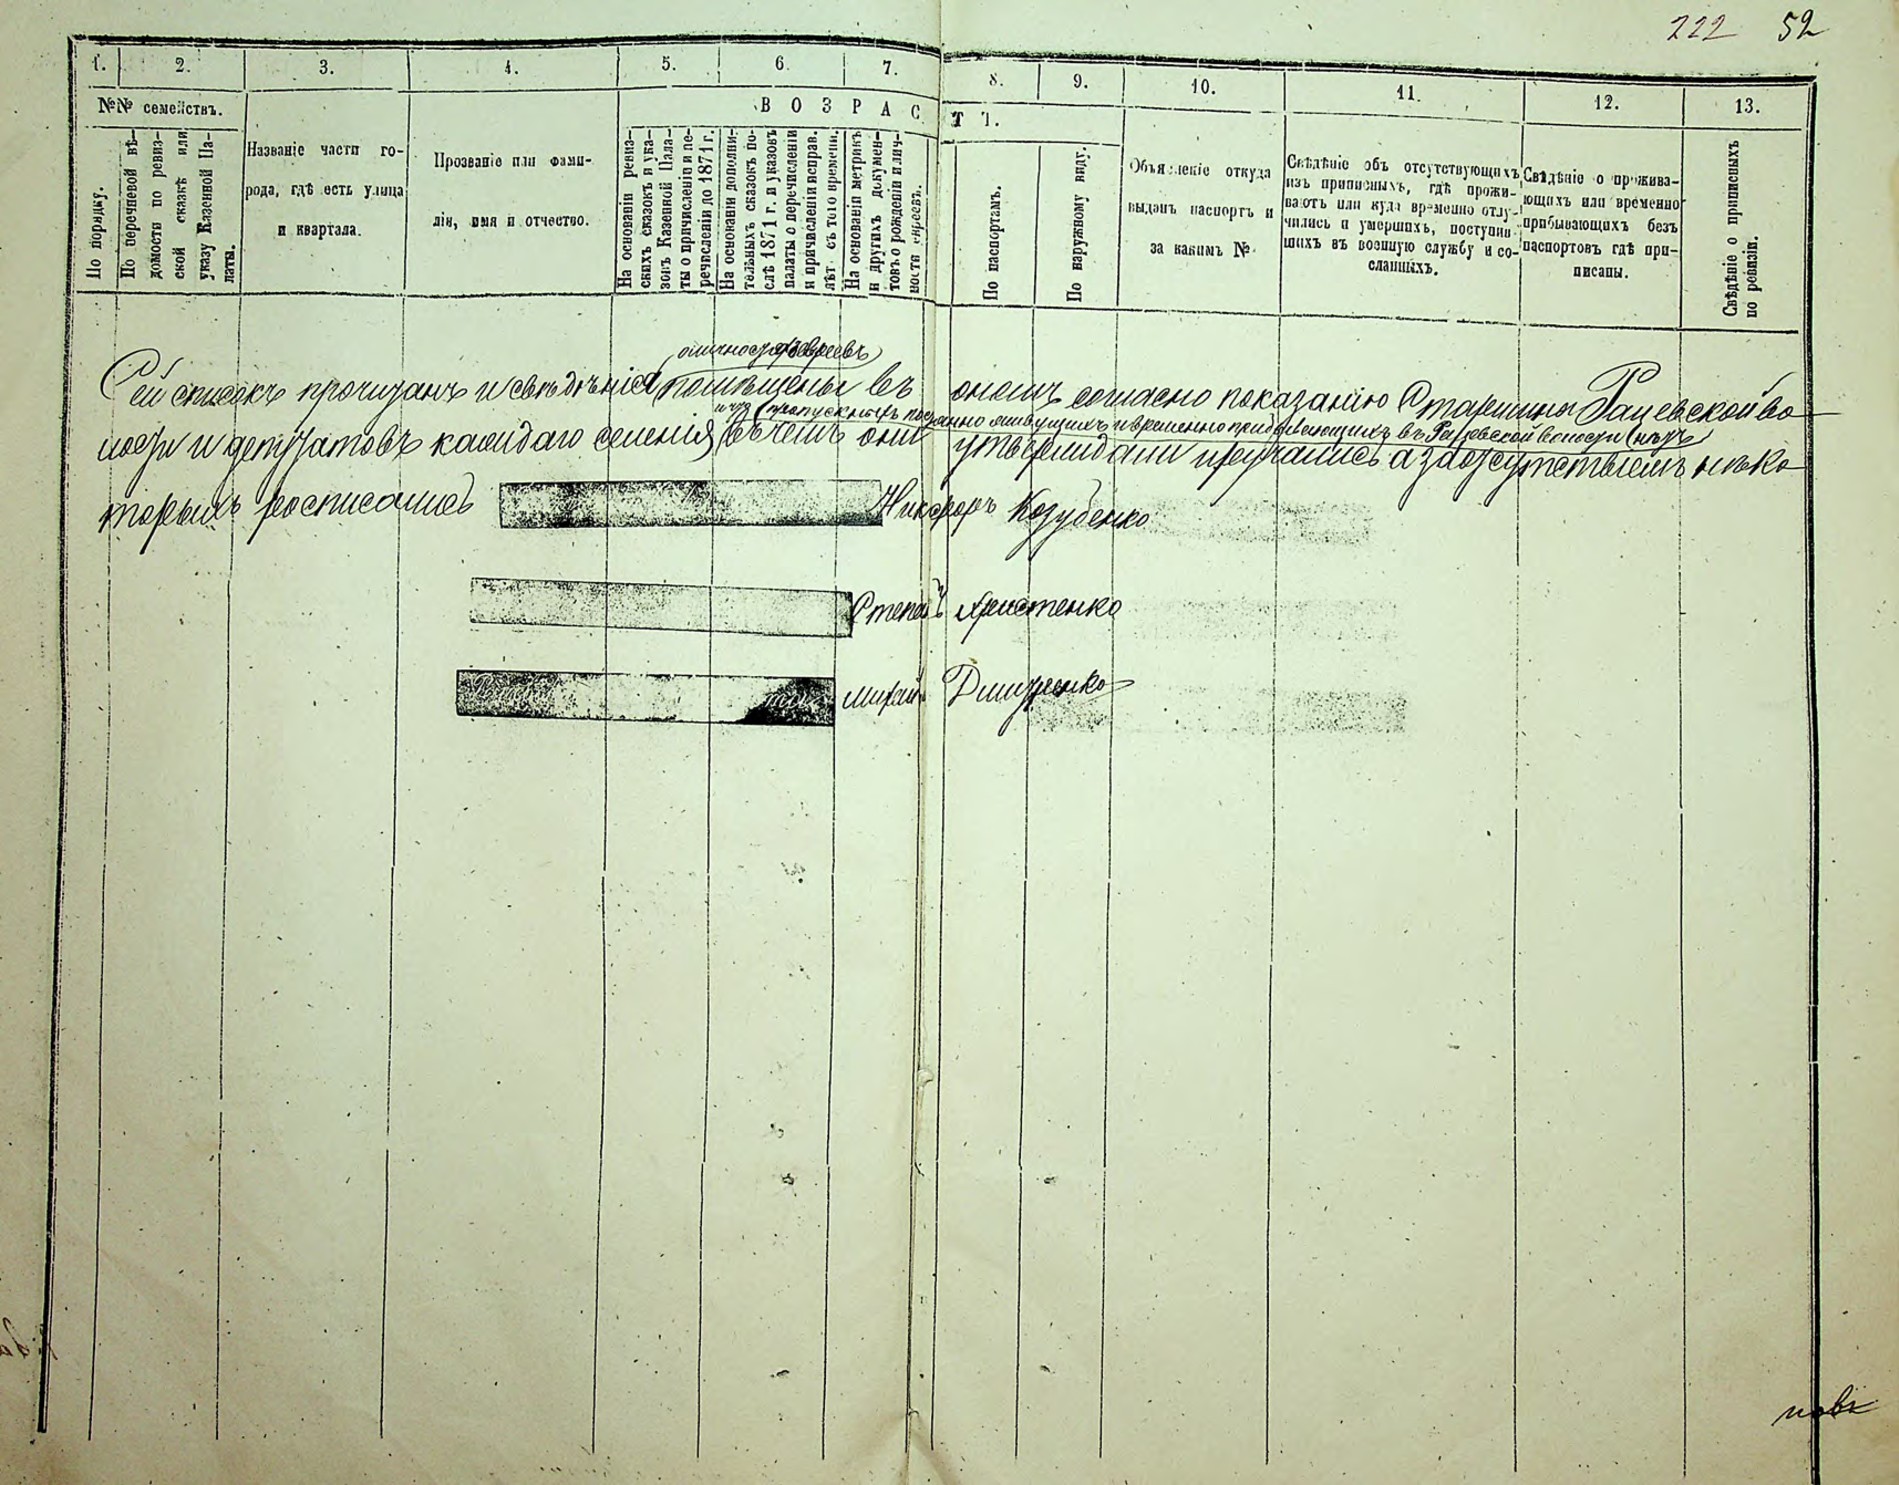 222 52
1. 2. 3. 4. 5. 6. 7. 8. 9. 10. 11. 12. 13.
№№ семействъ.
В О З Р А С Т Ъ.
По порядку.
По перечневой вѣ-
домости по ревиз-
ской сказкѣ или
указу Казенной Па-
латы.
Названіе части го-
рода, гдѣ есть улица
и квартала.
Прозваніе или фами-
лія, имя и отчество.
На основаніи ревиз-
скихъ сказокъ и ука-
зовъ Казенной Пала-
ты о причисленіи и пе-
речисленіи до 1871 г.
На основаніи дополни-
тельныхъ сказокъ по-
слѣ 1871 г. и указовъ
палаты о перечисленіи
и причисленіи исправ.
лѣт съ того времени.
На основаніи метрикъ
и другихъ докумен-
товъ о рожденіи и лич-
ности евреевъ.
По паспортамъ.
По наружному виду.
Объясленіе откуда
выданъ паспортъ и
за какимъ №.
Свѣдѣніе объ отсутствующихъ
изъ приписныхъ, гдѣ прожи-
ваютъ или куда временно отлу-
чились и умершихъ, поступив-
шихъ въ военную службу и со-
сланныхъ.
Свѣдѣніе о прожива-
ющихъ или временно
прибывающихъ безъ
паспортовъ гдѣ при-
писаны.
Свѣдѣніе о приписныхъ
по ревизіи.
о личности евреевъ
Сей списокъ прочитанъ и свѣдѣнія помѣщены въ ономъ согласно показанію Старшины Рацевской во-
и что пропускныхъ постоянно живущихъ и временно пребывающихъ въ Рацевской волости нѣтъ
лости и депутатовъ каждаго селенія въ чемъ они утверждали и ручались а за отсутствіемъ нѣко-
торыхъ росписались
Никифоръ Козубенко
Степанъ Христенко
Михаилъ Дмитренко